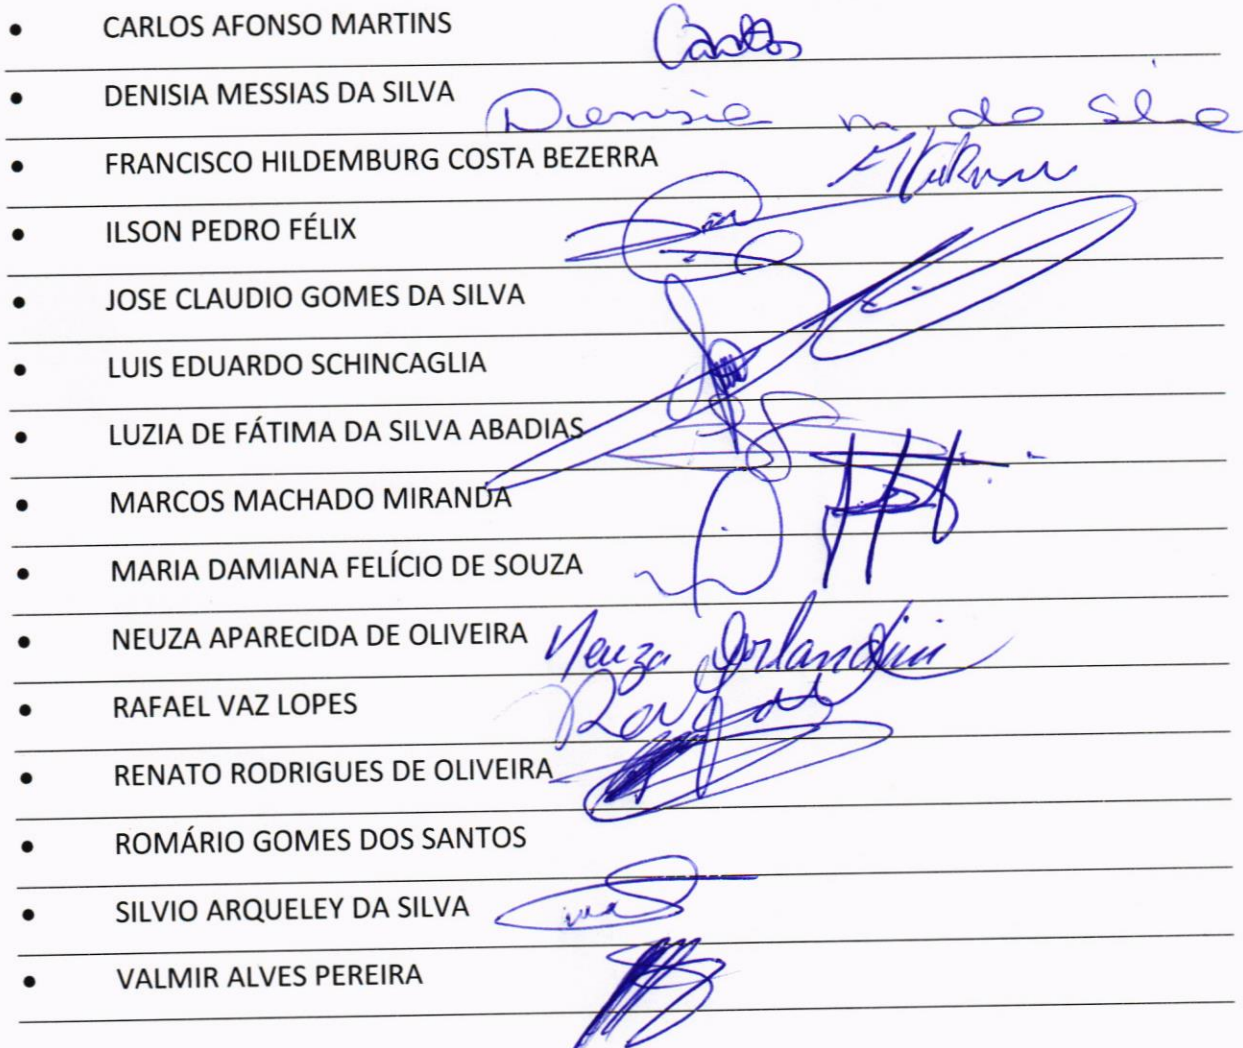 • CARLOS AFONSO MARTINS Carlos
• DENISIA MESSIAS DA SILVA Denisia m da Silva
• FRANCISCO HILDEMBURG COSTA BEZERRA
• ILSON PEDRO FÉLIX
• JOSE CLAUDIO GOMES DA SILVA
• LUIS EDUARDO SCHINCAGLIA
• LUZIA DE FÁTIMA DA SILVA ABADIAS
• MARCOS MACHADO MIRANDA
• MARIA DAMIANA FELÍCIO DE SOUZA
• NEUZA APARECIDA DE OLIVEIRA Neuza Orlandini
• RAFAEL VAZ LOPES
• RENATO RODRIGUES DE OLIVEIRA
• ROMÁRIO GOMES DOS SANTOS
• SILVIO ARQUELEY DA SILVA
• VALMIR ALVES PEREIRA